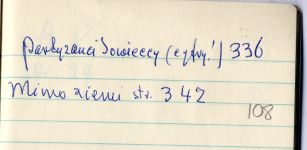 partyzanci sowieccy (cyfry!) 336
Mimo ziemi str. 342
108